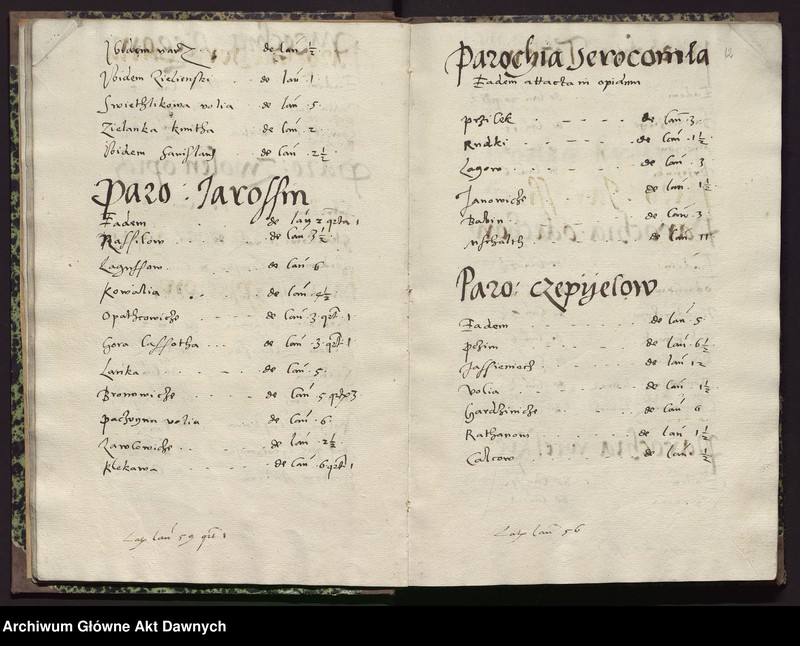 Ibidem de lań ½
Ibidem Zielienski de lań 1
Swiethlikowa volia de lań 5
Zielanka kmitha de lań 2
Ibidem Stanislaus de lań 2½
Paro: Jarossin
Eadem de lań 2 qrta 1
Rassilow de lań 3½
Lagussow de lań 6
Kowalia de lań 4½
Opathcowicze de lań 3 qrt 1
Gora Cassotha de lań 3 qrt 1
Lanka de lań 5
Bronowicze de lań 5 qrt 3
Pachnyna volia de lań 6
Zawlowicze de lań 2½
Klekawa de lań 6 qrt 1
lań 59 qrt 1
12
Parochia Jerocomla
Eadem attacta in opidum
Przilek de lań 3
Rudki de lań 1½
Lagow de lań 3
Janowicze de lań 1½
Babin de lań 3
de lań 11
Paro: czepijelow
Eadem de lań 5
Pczim de lań 6½
Jassieniecz de lań 12
Volia de lań 1½
Gardzinicze de lań 6
Kathanow de lań 1½
Calcow de lań ½
lań 56
Archiwum Główne Akt Dawnych